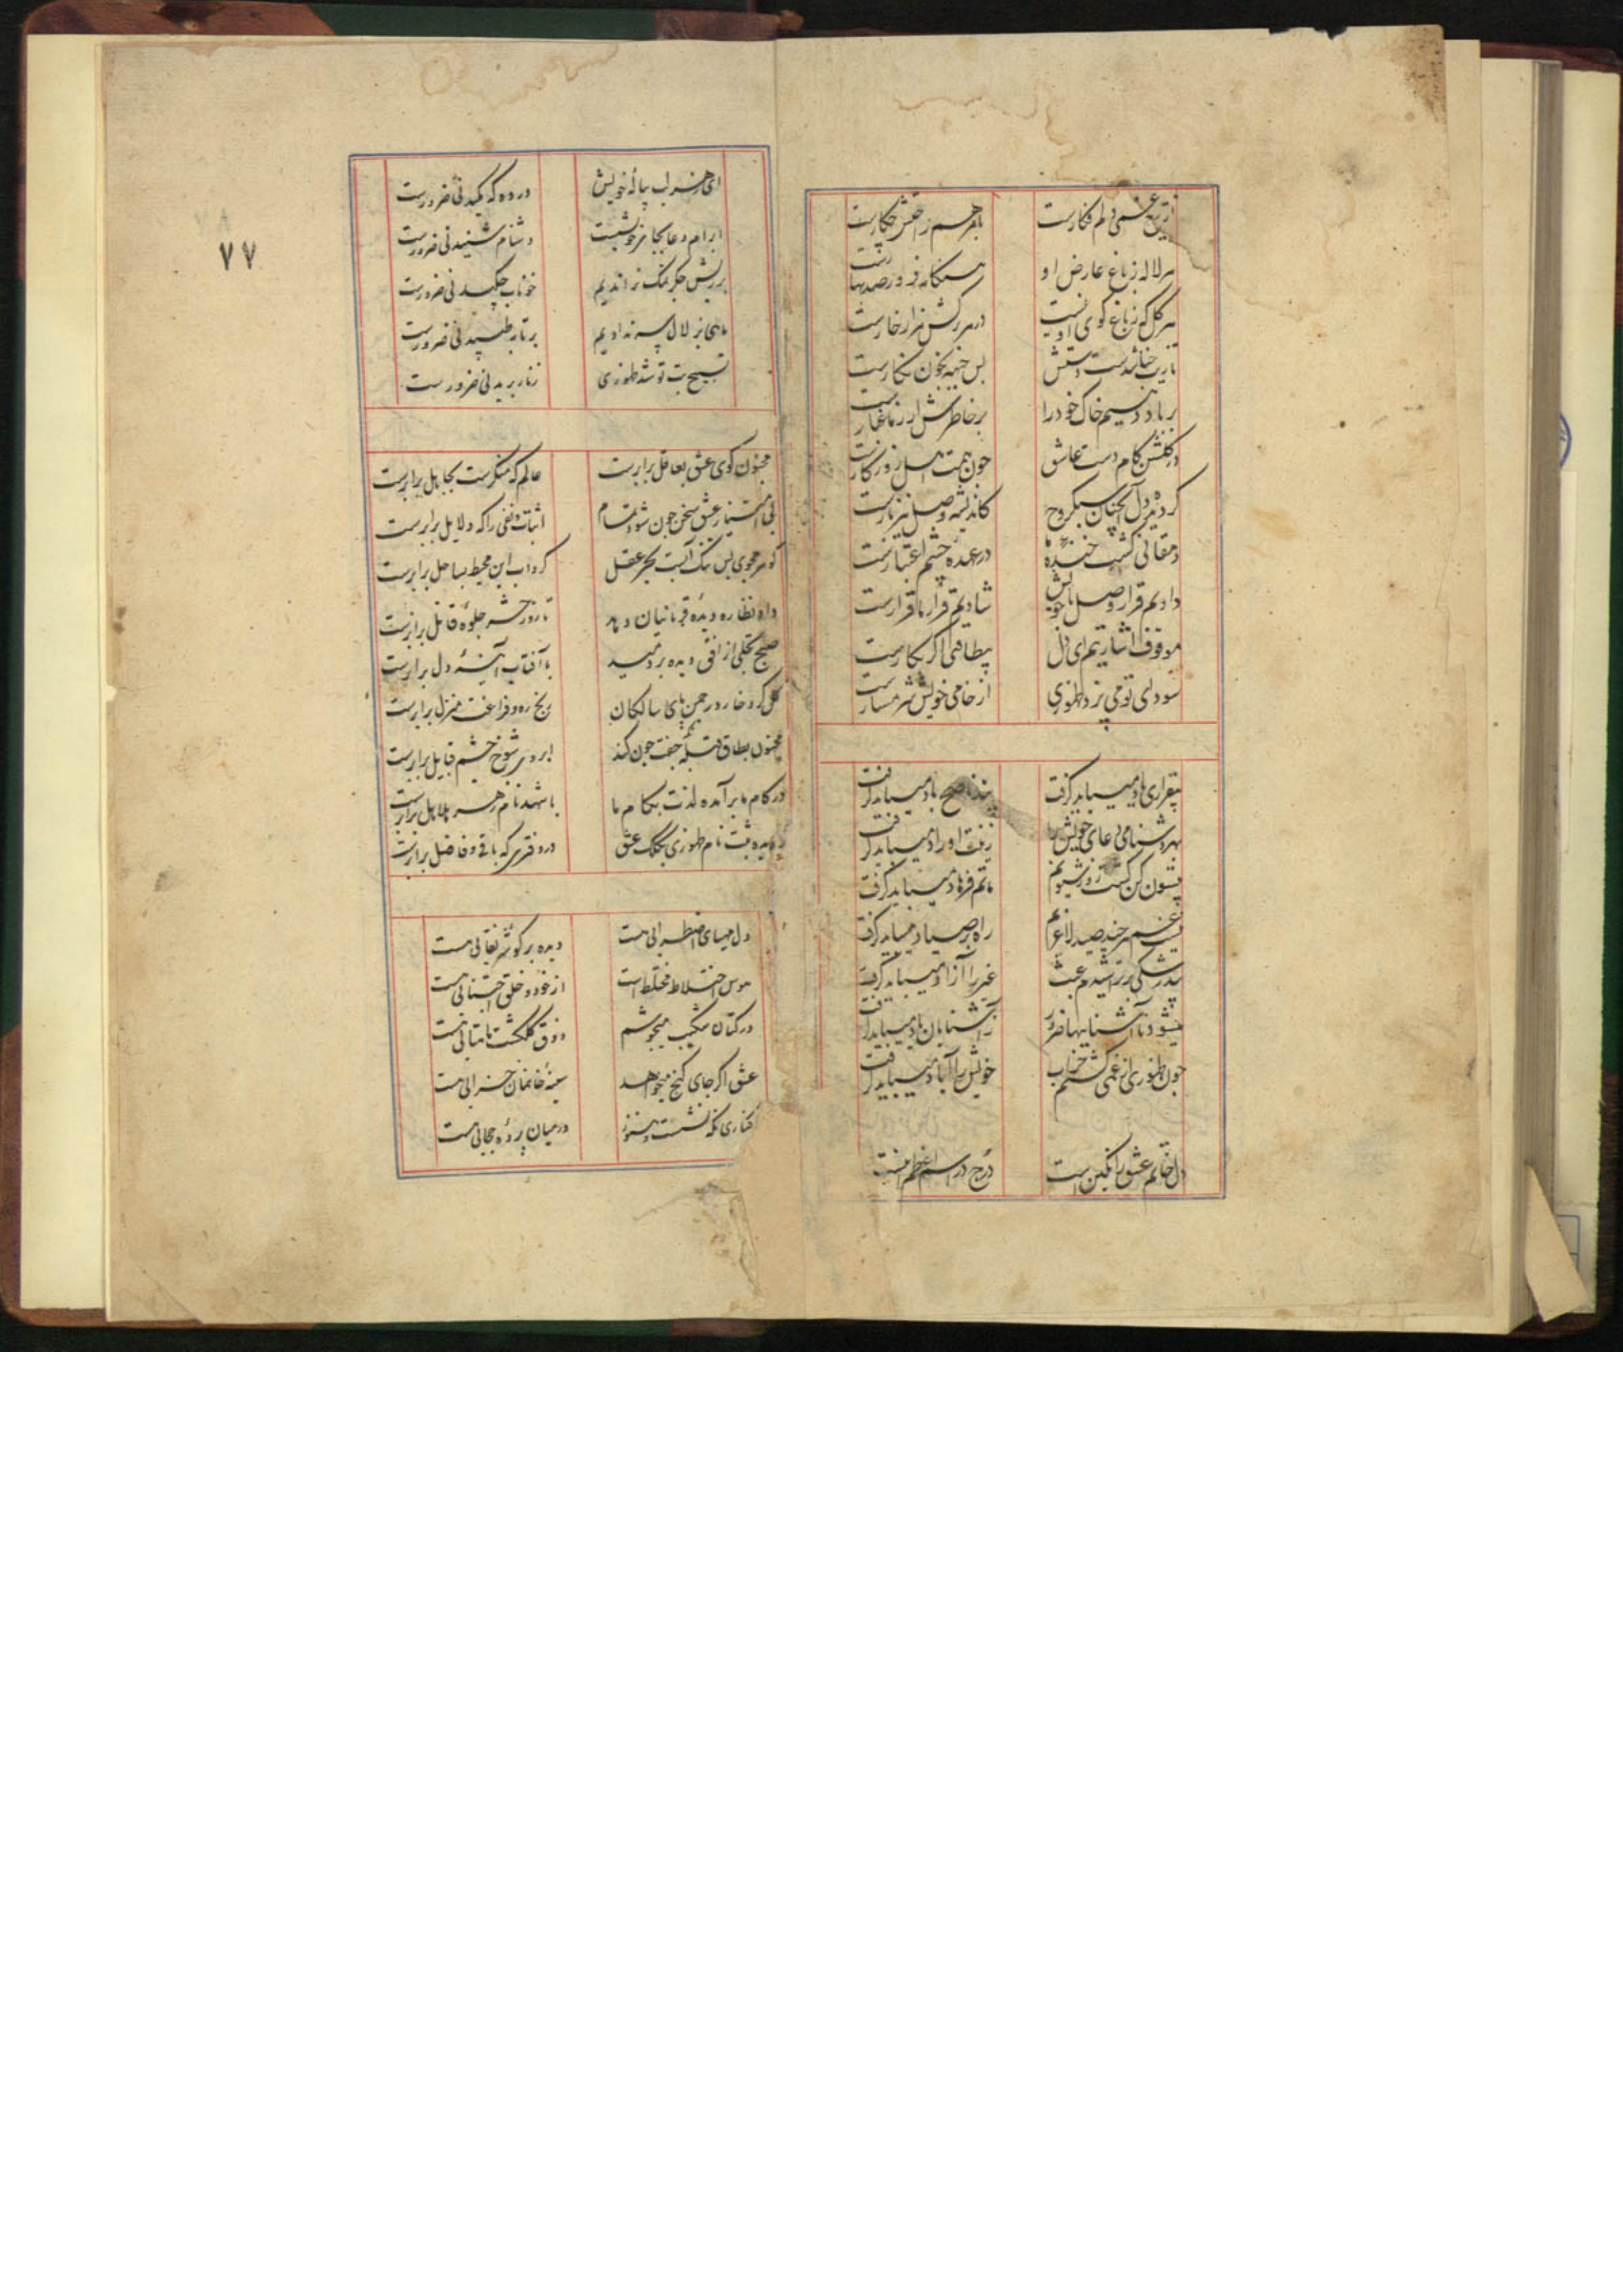 از تیغ غمی دلم فکارست با مرهم راحتش چکارست
هر لاله ز باغ عارض او هنگامه فروز صد بهارست
هر گل که ز باغ کوی او نیست در هر رگش هزار خارست
تا زیب حنا شدست دستش بس جبهه بخون نگارست
بر باد دهیم خاک خود را بر خاطرش ار ز ما غبارست
در گلشن کام دست عاشق چون همت اهل روزگارست
کرده دل آنچنان سبکروح کاندیشه وصل نیز بارست
دهقانی کشت خنده ها در عهده چشم اشکبارست
دادیم قرار وصل با خویش شادیم قرار ما قرارست
موقوف اشارتیم ای دل بیطاقتی اگر بکارست
سودای تو می پزد ظهوری از خامی خویش شرمسارست
بیقراری یاد میباید گرفت پند ناصح باد میباید گرفت
بهر دشنامی دعای خویش را
بیستون کن گشت زور شیونم ماتم فرهاد میباید گرفت
نیستم هر چند صید لاغرم راه بر صیاد میباید گرفت
غیر را آزاد میباید گرفت
میشود ناآشناییها ضرور آشنایان یاد میباید گرفت
چون ظهوری از غمی گشتم خراب خویش را آباد میباید گرفت
دل خاتم عشق را نگین است درج در اسم اعظم اینست
۷۷
ای هرزه لب پیاله خویش در ده که مکیدنی ضرورست
ابرام دعا بجا فرو نیست دشنام شنیدنی ضرورست
بر ریش جگر نمک نراندیم خوناب چکیدنی ضرورست
ماهی بزلال سر ندادیم بر تابه طپیدنی ضرورست
تسبیح بت تو شد ظهوری زنار بریدنی ضرورست
مجنون کوی عشق بعاقل برابرست عالم که منکرست بجاهل برابرست
بی امتیاز عشق سخن چون شود تمام اثبات و نفی را که دلایل برابرست
گوهر مجوی بس تنک آبست بحر عقل گرداب این محیط بساحل برابرست
داد نظاره دیده قربانیان دهد تا روز حشر جلوه قاتل برابرست
صبح تجلی از افق دیده بردمید با آفتاب آینه دل برابرست
گل کرد خار در چمن پای سالکان رنج ره و فراغت منزل برابرست
مجنون بطاق قبله جفت چون کند ابروی شوخ چشم قبایل برابرست
در کام ما برآمده لذت بکام ما با شهد نام زهر هلاهل برابرست
گردیده ثبت نام ظهوری بکلک عشق در دفتری که باقی و فاضل برابرست
دل مهیای اضطرابی هست دیده بر گوشه نقابی هست
هوس اختلاط مختلط است از خود و خلق اجتنابی هست
در کتان شکیب میجوشم ذوق گلگشت ماهتابی هست
عشق اگر جای گنج میخواهد سینه خانمان خرابی هست
کناری نگه نشست هنوز در میان پرده حجابی هست